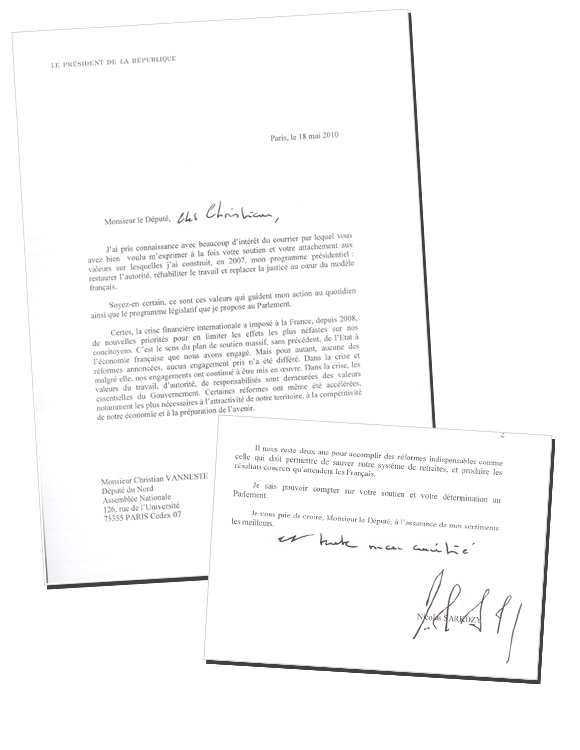 LE PRÉSIDENT DE LA RÉPUBLIQUE
Paris, le 18 mai 2010
Monsieur le Député, Cher Christian,
J'ai pris connaissance avec beaucoup d'intérêt du courrier par lequel vous
avez bien voulu m'exprimer à la fois votre soutien et votre attachement aux
valeurs sur lesquelles j'ai construit, en 2007, mon programme présidentiel :
restaurer l'autorité, réhabiliter le travail et replacer la justice au cœur du modèle
français.
Soyez-en certain, ce sont ces valeurs qui guident mon action au quotidien
ainsi que le programme législatif que je propose au Parlement.
Certes, la crise financière internationale a imposé à la France, depuis 2008,
de nouvelles priorités pour en limiter les effets les plus néfastes sur nos
concitoyens. C'est le sens du plan de soutien massif, sans précédent, de l'Etat à
l'économie française que nous avons engagé. Mais pour autant, aucune des
réformes annoncées, aucun engagement pris n'a été différé. Dans la crise et
malgré elle, nos engagements ont continué à être mis en œuvre. Dans la crise, les
valeurs du travail, d'autorité, de responsabilités sont demeurées des valeurs
essentielles du Gouvernement. Certaines réformes ont même été accélérées,
notamment les plus nécessaires à l'attractivité de notre territoire, à la compétitivité
de notre économie et à la préparation de l'avenir.
Monsieur Christian VANNESTE
Député du Nord
Assemblée Nationale
126, rue de l'Université
75355 PARIS Cedex 07
2
Il nous reste deux ans pour accomplir des réformes indispensables comme
celle qui doit permettre de sauver notre système de retraites, et produire les
résultats concrets qu'attendent les Français.
Je sais pouvoir compter sur votre soutien et votre détermination au
Parlement.
Je vous prie de croire, Monsieur le Député, à l'assurance de mes sentiments
les meilleurs.
et toute mon amitié
Nicolas SARKOZY